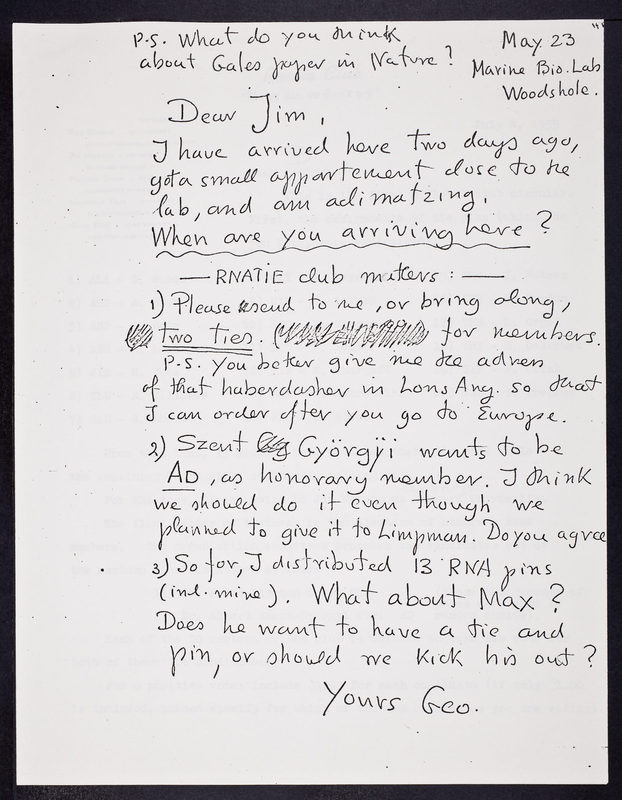 P.S. What do you think
about Gales paper in Nature?
May 23
Marine Bio. Lab
Woodshole.
Dear Jim,
I have arrived here two days ago,
got a small appartement close to the
lab, and am aclimatzing.
When are you arriving here?
— RNATIE club matters: —
1) Please send to me, or bring along,
two ties. ( for members.
P.S. you better give me the adress
of that haberdasher in Lons Ang. so that
I can order after you go to Europe.
2) Szent Györgyi wants to be
AD, as honorary member. I think
we should do it even though we
planned to give it to Limpman. Do you agree
3) So far, I distributed 13 RNA pins
(incl. mine). What about Max?
Does he want to have a tie and
pin, or should we kick his out?
Yours Geo.